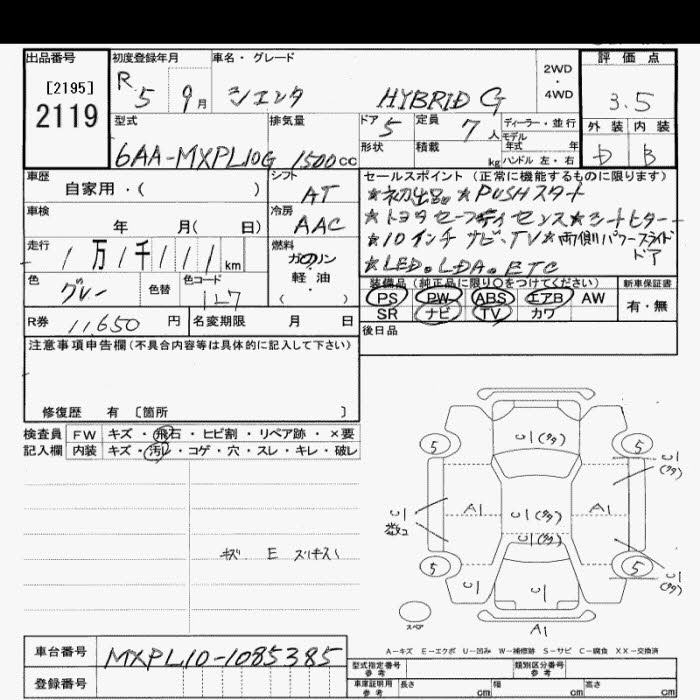 出品番号
[2195]
2119
初度登録年月
R 5 9月
車名・グレード
シエンタ HYBRID G
2WD
・
4WD
評価点
3.5
外装 内装
D B
型式
6AA-MXPL10G
排気量
1500cc
ドア 5
形状
定員 7人
積載 kg
ディーラー・並行
モデル
年式 年
ハンドル 左・右
車歴
自家用・( )
シフト
AT
車検
年 月( 日)
冷房
AAC
走行
1万1千111km
燃料
ガソリン
軽・油
( )
色
グレー
色替
色コード
1L7
R券 11650 円
名変期限 月 日
セールスポイント (正常に機能するものに限ります)
★初出品。★PUSHスタート
★トヨタセーフティセンス★シートヒーター
★10インチナビ、TV★両側パワースライドドア
★LED。LDA。ETC
装備品 (純正品に限り○をつけてください)
PS PW ABS エアB AW
SR ナビ TV カワ
新車保証書
有・無
後日品
注意事項申告欄(不具合内容等は具体的に記入して下さい)
修復歴 有 〔箇所 〕
検査員 FW キズ・飛石・ヒビ割・リペア跡・×要
記入欄 内装 キズ・汚レ・コゲ・穴・スレ・キレ・破レ
キズ E スリキズ
5 5
U1(多々)
U1(多々)
U1
数コ
A1 U1(多々) A1
U1(多々)
5 5
U1(多々)
U1 U1
スペア
A1
A-キズ E-エクボ U-凹み W-補修跡 S-サビ C-腐食 XX-交換済
車台番号 MXPL10-1085385
登録番号
型式指定番号
参考
類別区分番号
参考
車庫証明用
参考
長さ cm 幅 cm 高さ cm